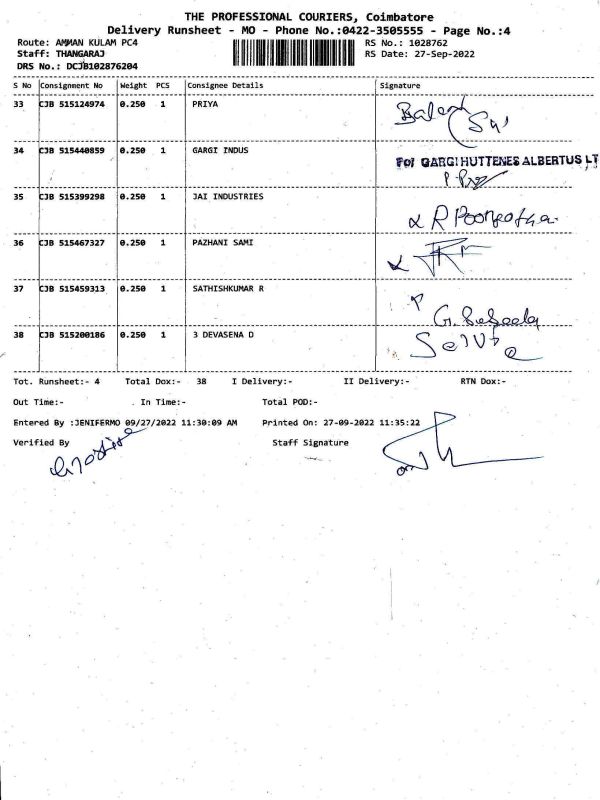 THE PROFESSIONAL COURIERS, Coimbatore
Delivery Runsheet - MO - Phone No.:0422-3505555 - Page No.:4
Route: AMMAN KULAM PC4 RS No.: 1028762
Staff: THANGARAJ RS Date: 27-Sep-2022
DRS No.: DCJB102876204
S No Consignment No Weight PCS Consignee Details Signature
33 CJB 515124974 0.250 1 PRIYA
34 CJB 515440859 0.250 1 GARGI INDUS For GARGI HUTTENES ALBERTUS LT
35 CJB 515399298 0.250 1 JAI INDUSTRIES
36 CJB 515467327 0.250 1 PAZHANI SAMI
37 CJB 515459313 0.250 1 SATHISHKUMAR R
38 CJB 515200186 0.250 1 3 DEVASENA D
Tot. Runsheet:- 4 Total Dox:- 38 I Delivery:- II Delivery:- RTN Dox:-
Out Time:- In Time:- Total POD:-
Entered By :JENIFERMO 09/27/2022 11:30:09 AM Printed On: 27-09-2022 11:35:22
Verified By Staff Signature